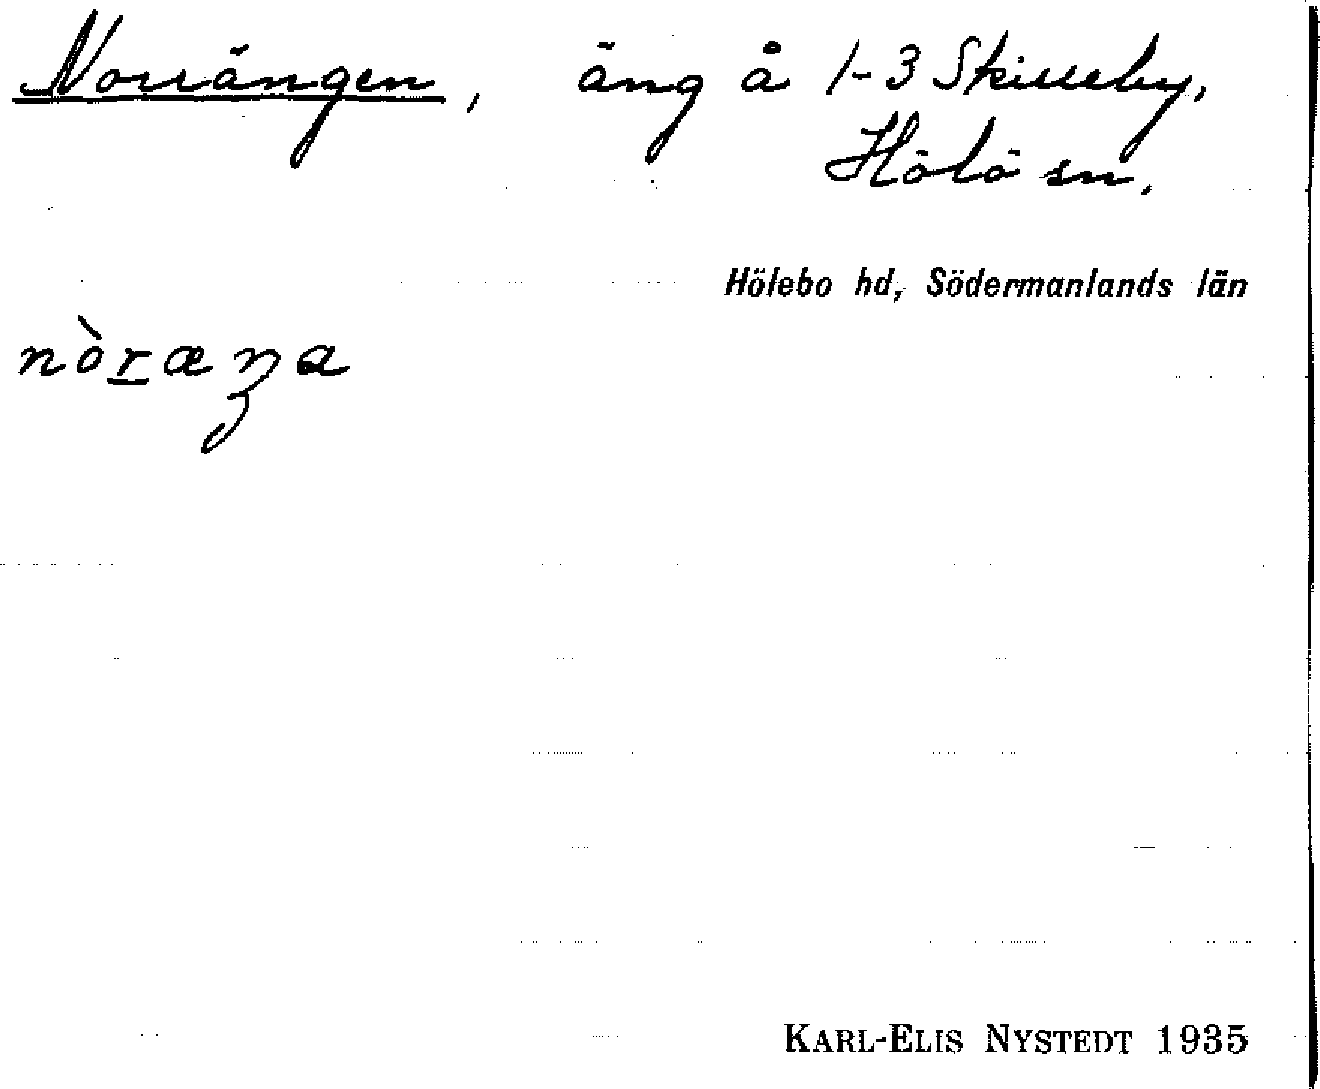 Norrängen, äng å 1-3 Skilleby,
Hölö sn.
Hölebo hd, Södermanlands län
nòræŋa
KARL-ELIS NYSTEDT 1935